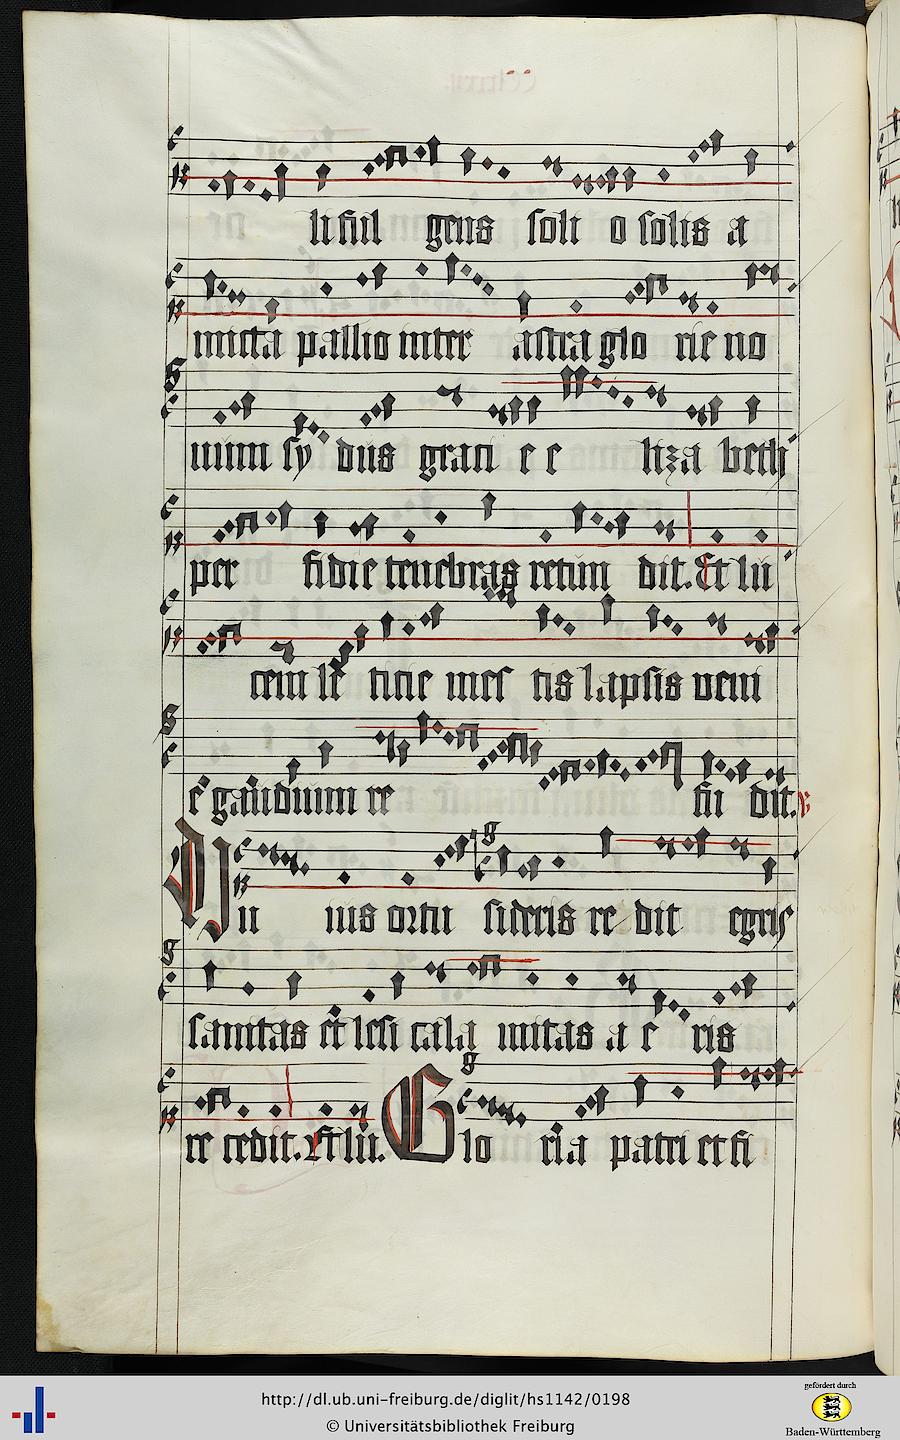 li fiil gens soli o solis a
micta pallio inter astra glo rie no
uum sy dus grati e e liza beth
per fidie tenebras retun dit. Et lu
cem le ticie mes tis lapsis veni
e gaudium re fu dit.
Hu ius ortu sideris re dit egris
sanitas et lesi cala mitas a e ris
re cedit. Et lu. Glo ria patri et fi
http://dl.ub.uni-freiburg.de/diglit/hs1142/0198
© Universitätsbibliothek Freiburg
gefördert durch
Baden-Württemberg